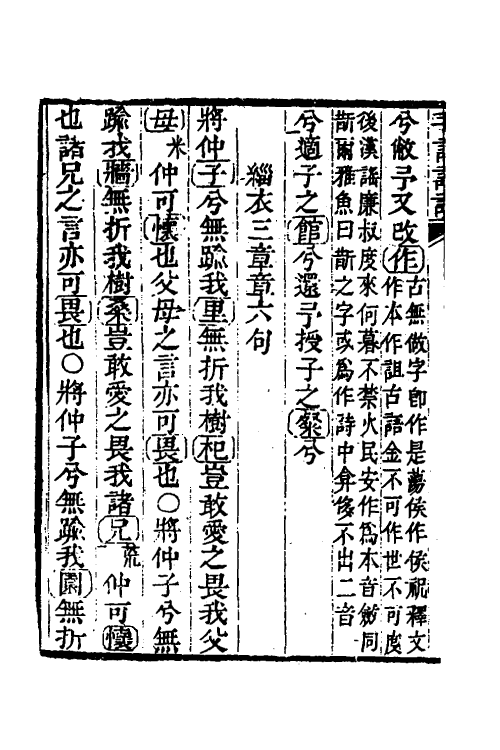 兮敝予又改作古無做字卽作是蕩侯作侯祝釋文
作本作詛古語金不可作世不可度
後漢謠廉叔度來何暮不禁火民安作爲本音 同
斮爾雅魚曰斮之字或爲作詩中 後不出二音
兮適子之館兮還予授子之粲兮
緇衣三章章六句
將仲子兮無踰我里無折我樹杞豈敢愛之畏我父
母米仲可懷也父母之言亦可畏也○將仲子兮無
踰我牆無折我樹桑豈敢愛之畏我諸兄荒仲可懷
也諸兄之言亦可畏也○將仲子兮無踰我園無折